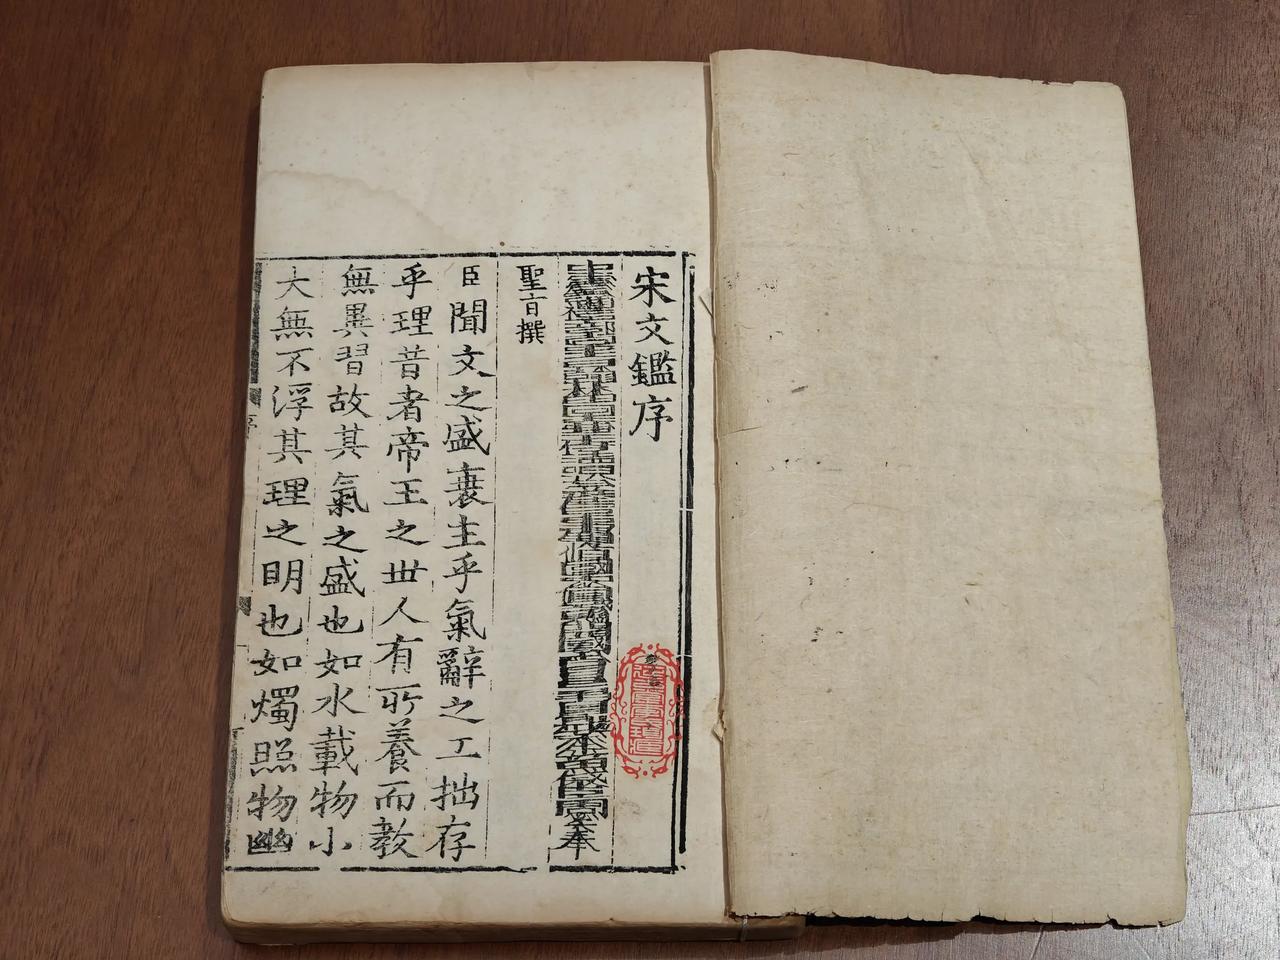 宋文鑑序
聖旨撰
臣聞文之盛衰主乎氣辭之工拙存
乎理昔者帝王之世人有所養而教
無異習故其氣之盛也如水載物小
大無不浮其理之明也如燭照物幽